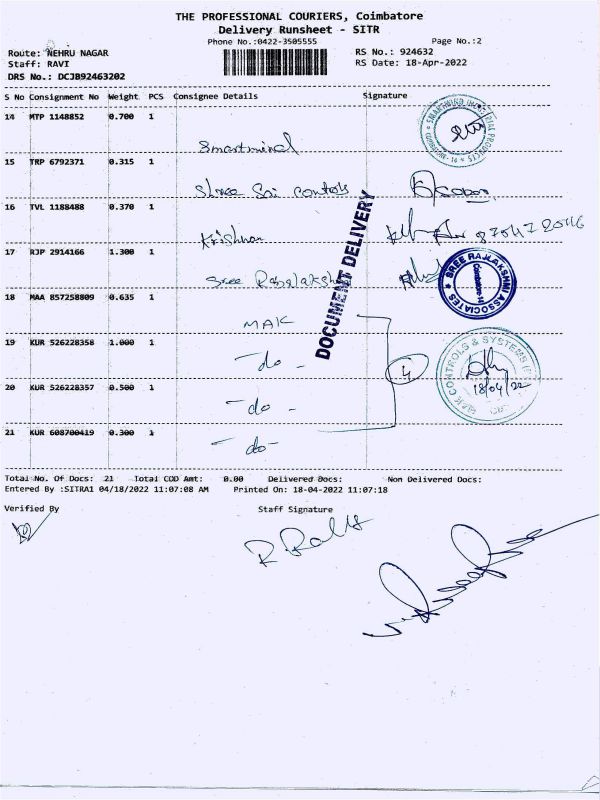 THE PROFESSIONAL COURIERS, Coimbatore
Delivery Runsheet - SITR
Phone No.:0422-3505555 Page No.:2
Route: NEHRU NAGAR RS No.: 924632
Staff: RAVI RS Date: 18-Apr-2022
DRS No.: DCJB92463202
S No Consignment No Weight PCS Consignee Details Signature
14 MTP 1148852 0.700 1
15 TRP 6792371 0.315 1
Shree Sai controls
16 TVL 1188488 0.370 1
Krishnan
17 RJP 2914166 1.300 1
Sree
18 MAA 857258809 0.635 1
MAK
19 KUR 526228358 1.000 1
- do -
20 KUR 526228357 0.500 1
- do -
21 KUR 608700419 0.300 1
- do -
DOCUMENT DELIVERY
SREE RAJLAKSHMI ASSOCIATES
CONTROLS & SYSTEMS
18/04/22
4
Total No. Of Docs: 21 Total COD Amt: 0.00 Delivered Docs: Non Delivered Docs:
Entered By :SITRA1 04/18/2022 11:07:08 AM Printed On: 18-04-2022 11:07:18
Verified By Staff Signature